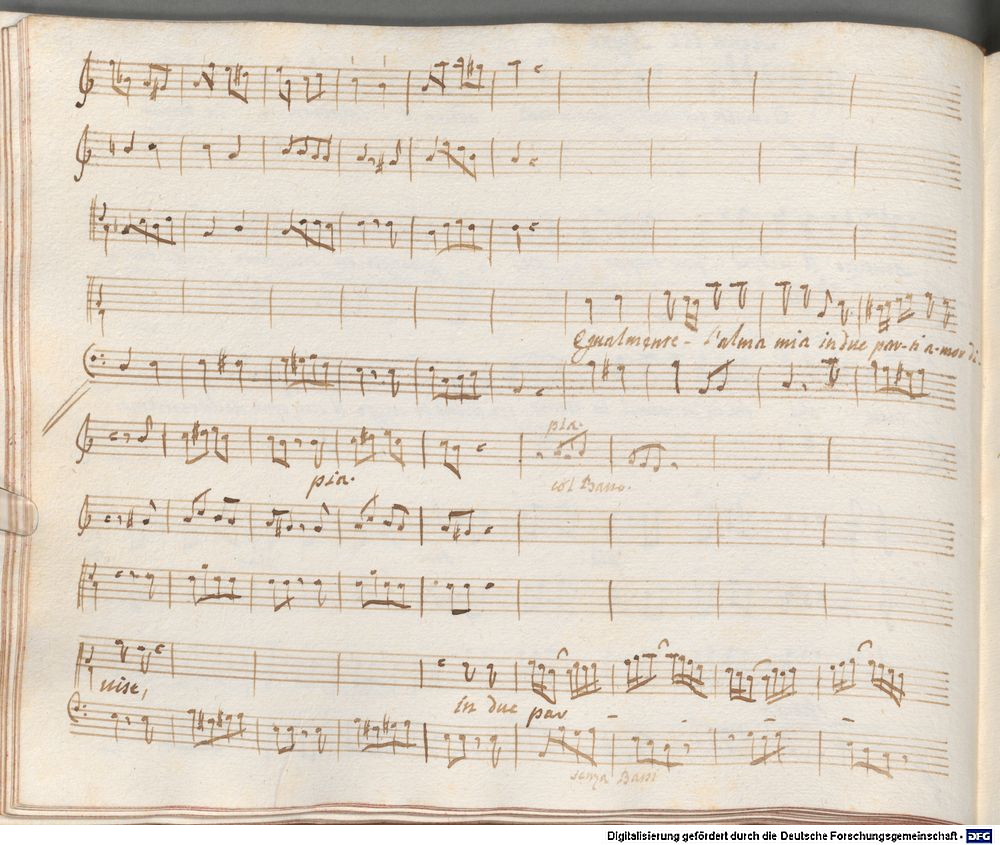 Egualmente - l'alma mia in due par-ti a-mor di-
pia.
pia.
col Basso.
vise,
in due par -
senza Bassi
Digitalisierung gefördert durch die Deutsche Forschungsgemeinschaft - DFG